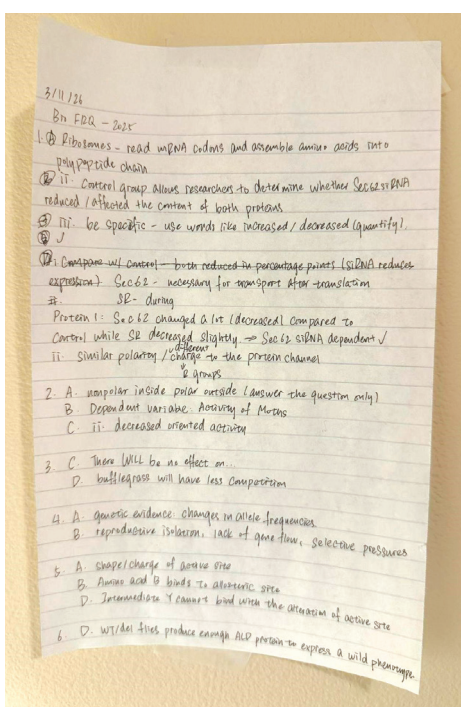 3/11/26
Bio FRQ - 2025
1. A Ribosomes - read mRNA codons and assemble amino acids into
polypeptide chain
B ii. Control group allows researchers to determine whether Sec62 siRNA
reduced / affected the content of both proteins
iii. be specific - use words like increased / decreased (quantify).
✓
D i Compare w/ control - both reduced in percentage points (siRNA reduces
expression) Sec62 - necessary for transport after translation
SR - during
Protein 1: Sec62 changed a lot (decreased) compared to
Control while SR decreased slightly → Sec62 siRNA dependent ✓
different
ii. similar polarity / charge to the protein channel
R groups
2. A. nonpolar inside polar outside (answer the question only)
B. Dependent variable: Activity of Moths
C ii. decreased oriented activity
3. C. There WILL be no effect on...
D. bufflegrass will have less competition
4. A. genetic evidence: changes in allele frequencies.
B. reproductive isolation, lack of gene flow, selective pressures
5. A. shape/charge of active site
B. Amino acid B binds to allosteric site
D. Intermediate Y cannot bind with the alteration of active site
6. D. WT/del flies produce enough ALD protein to express a wild phenotype.